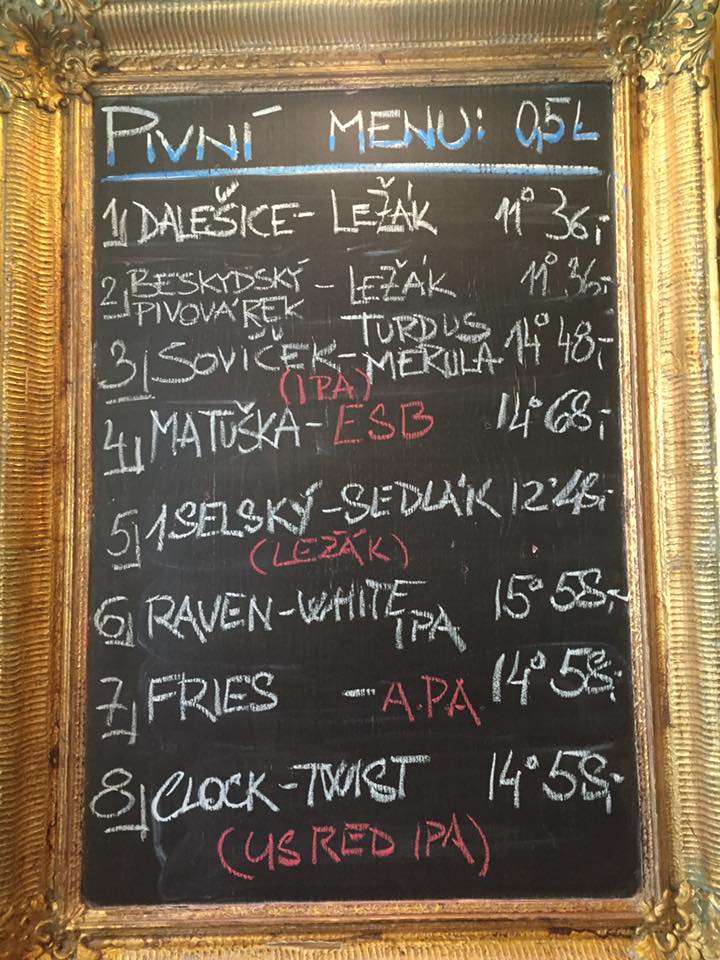 PIVNÍ MENU: 0,5L
1) DALEŠICE - LEŽÁK 11° 36,-
2) BESKYDSKÝ PIVOVÁREK - LEŽÁK 11° 36,-
3) SOVIČEK - TURDUS MERULA 14° 48,-
(IPA)
4) MATUŠKA - ESB 14° 68,-
5) 1SELSKÝ - SEDLÁK 12° 48,-
(LEŽÁK)
6) RAVEN - WHITE IPA 15° 58,-
7) FRIES - A.PA 14° 58,-
8) CLOCK - TWIST 14° 58,-
(US RED IPA)